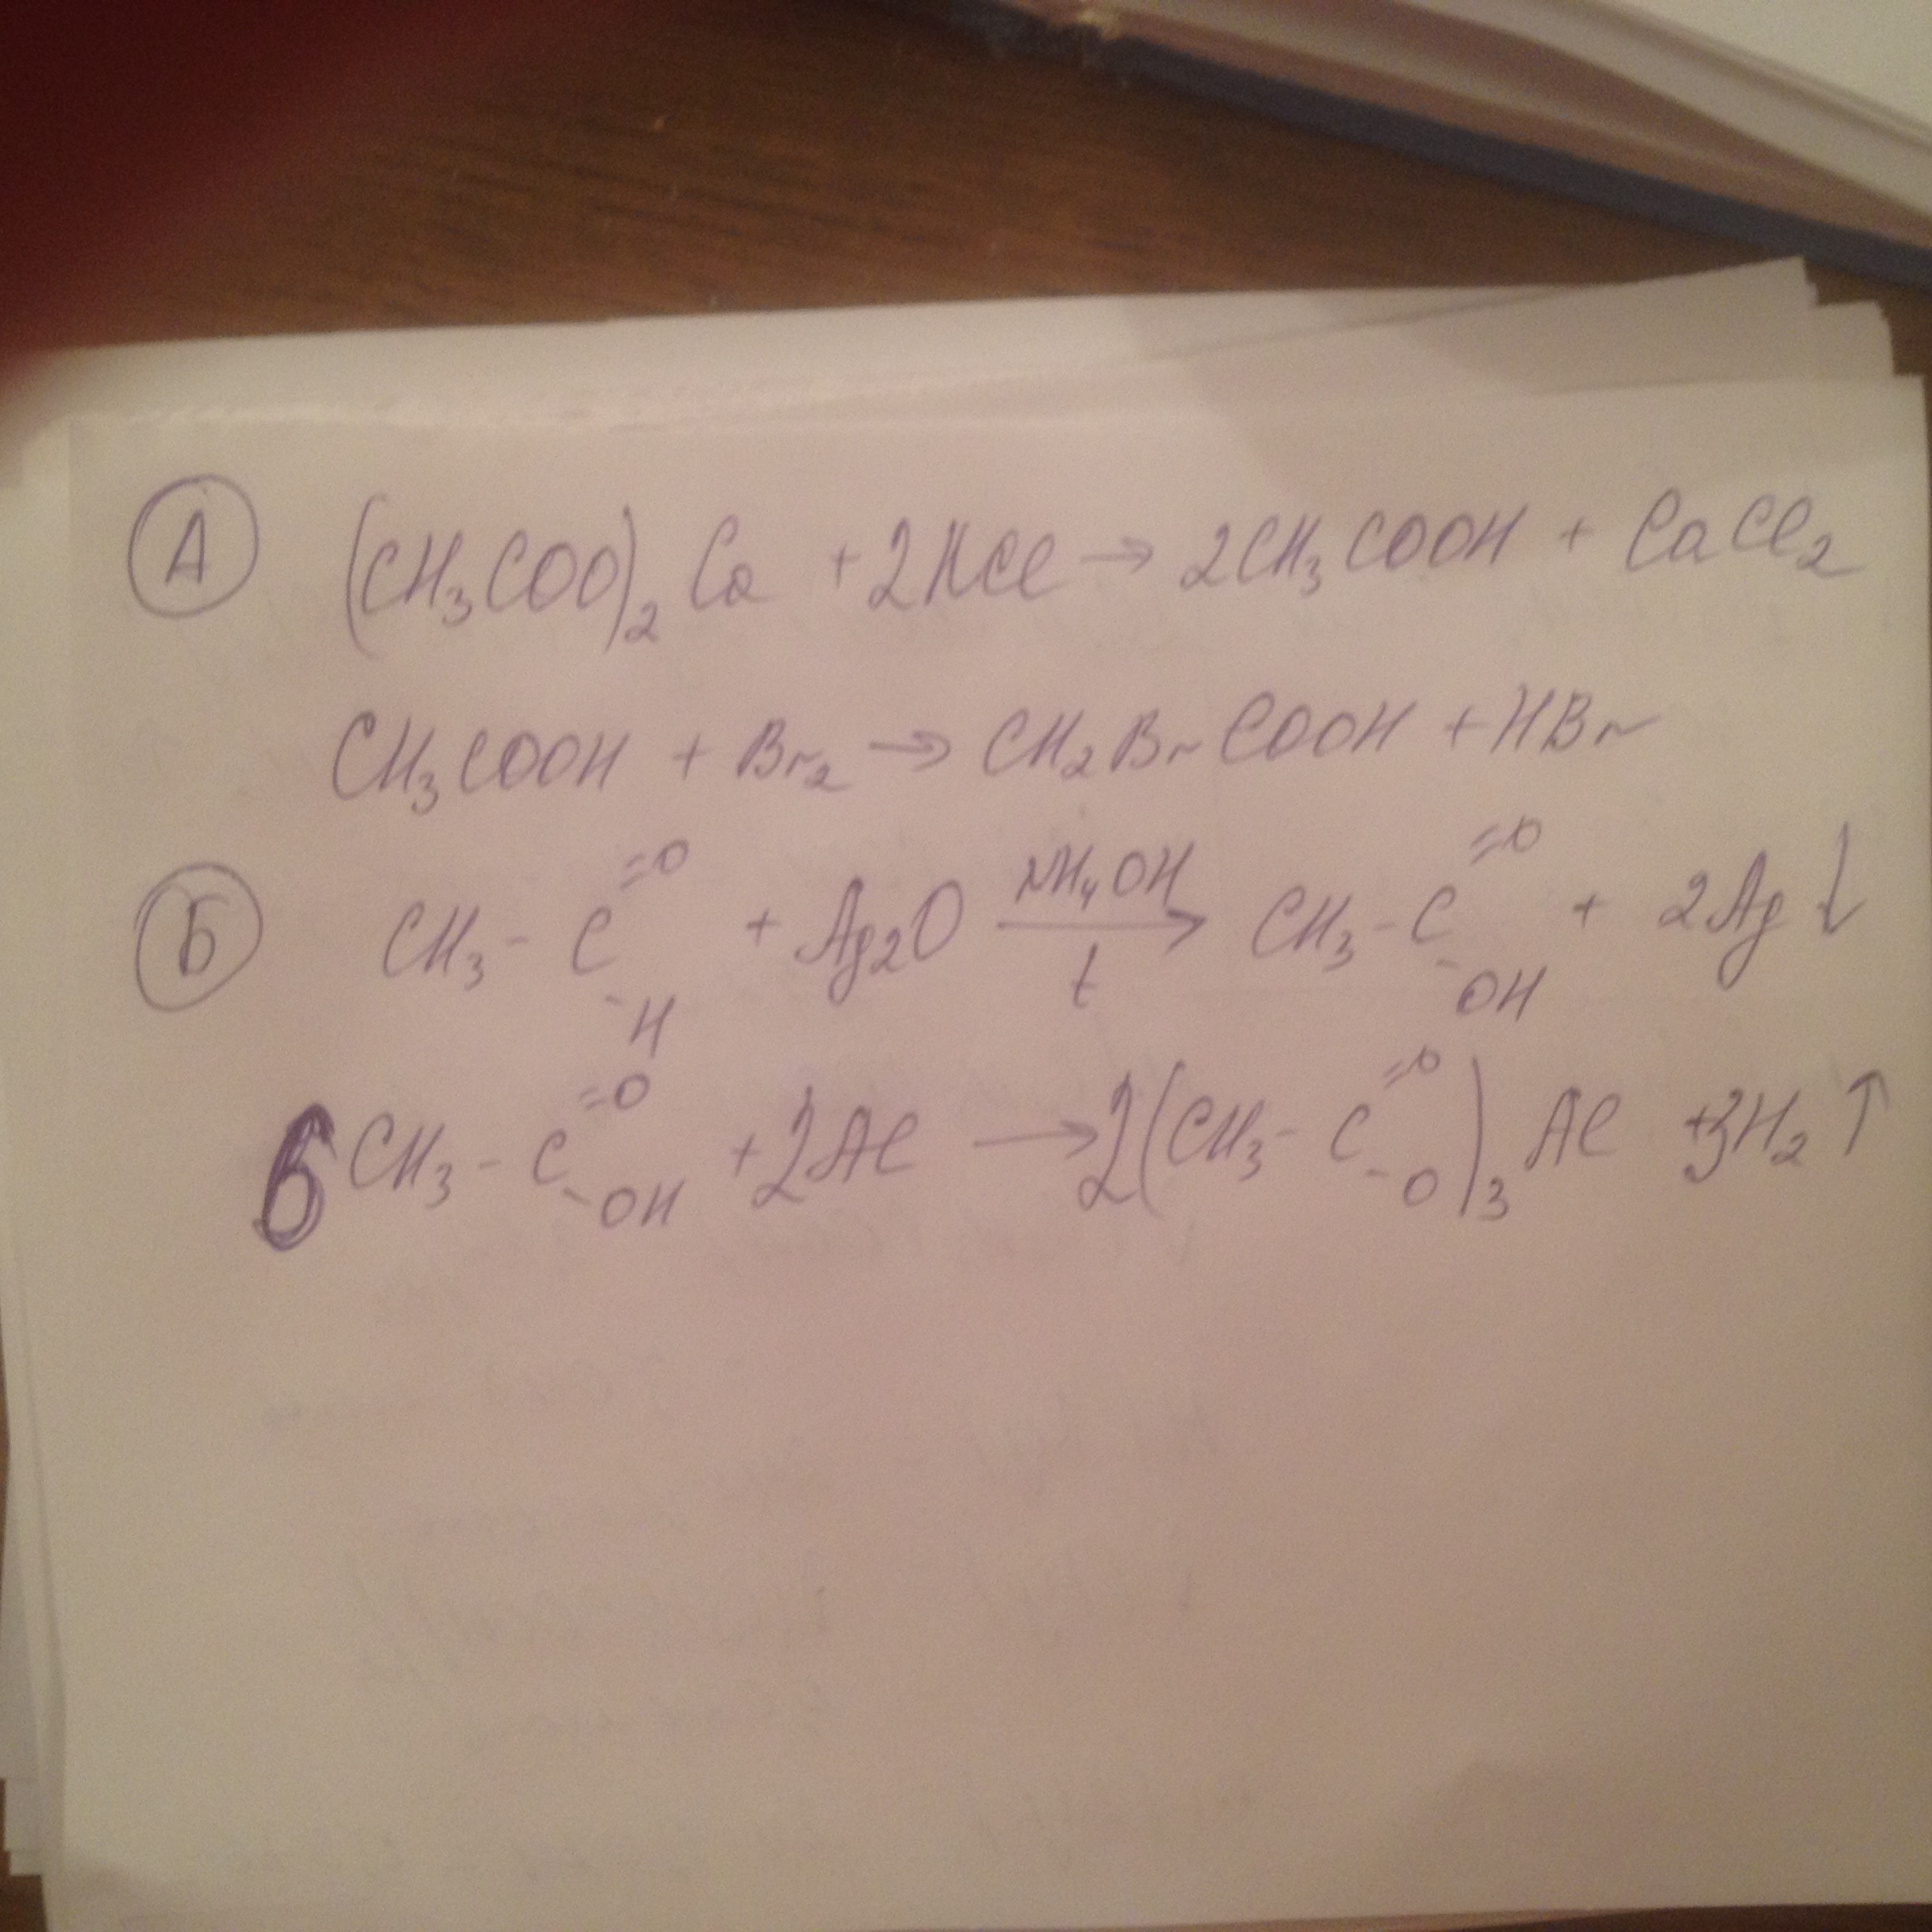 А (CH₃COO)₂Ca + 2HCl → 2CH₃COOH + CaCl₂
CH₃COOH + Br₂ → CH₂BrCOOH + HBr
Б CH₃-C(=O)-H + Ag₂O →(NH₄OH, t) CH₃-C(=O)-OH + 2Ag↓
6CH₃-C(=O)-OH + 2Al → 2(CH₃-C(=O)-O)₃Al + 3H₂↑